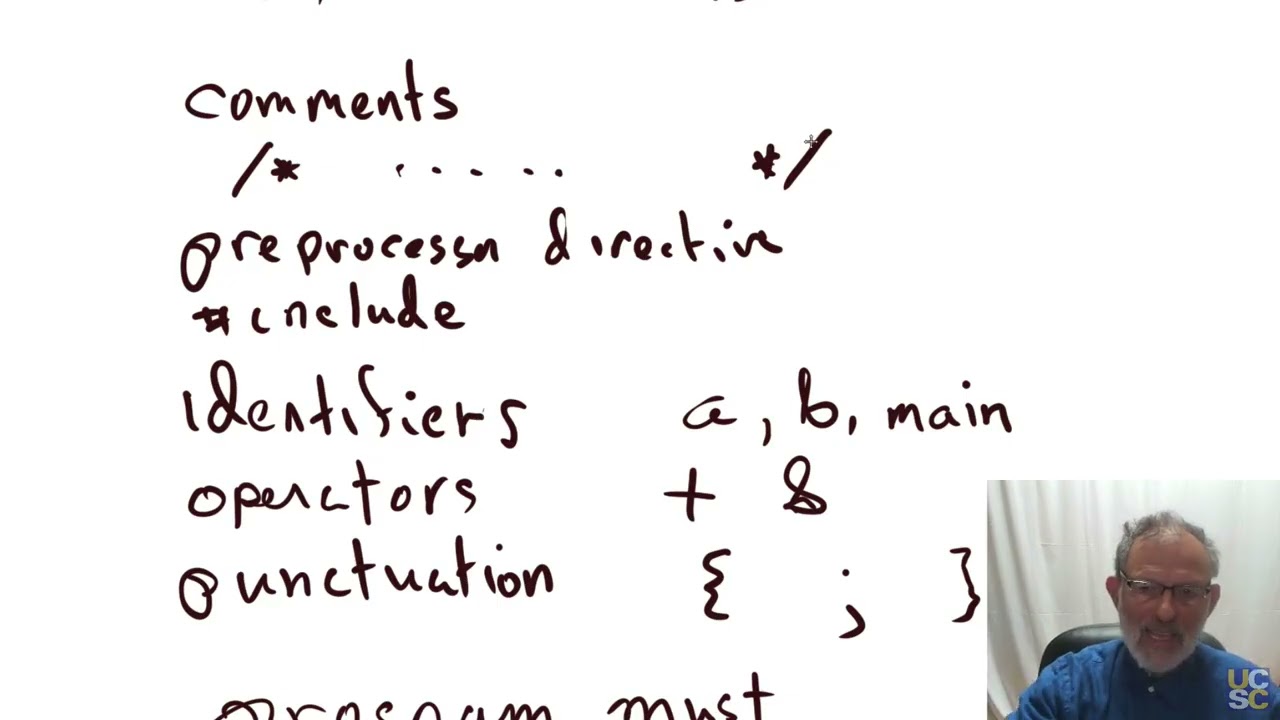 comments
/* ..... */
preprocessor directive
#include
identifiers a, b, main
operators + &
punctuation { ; }
program must
UC
SC